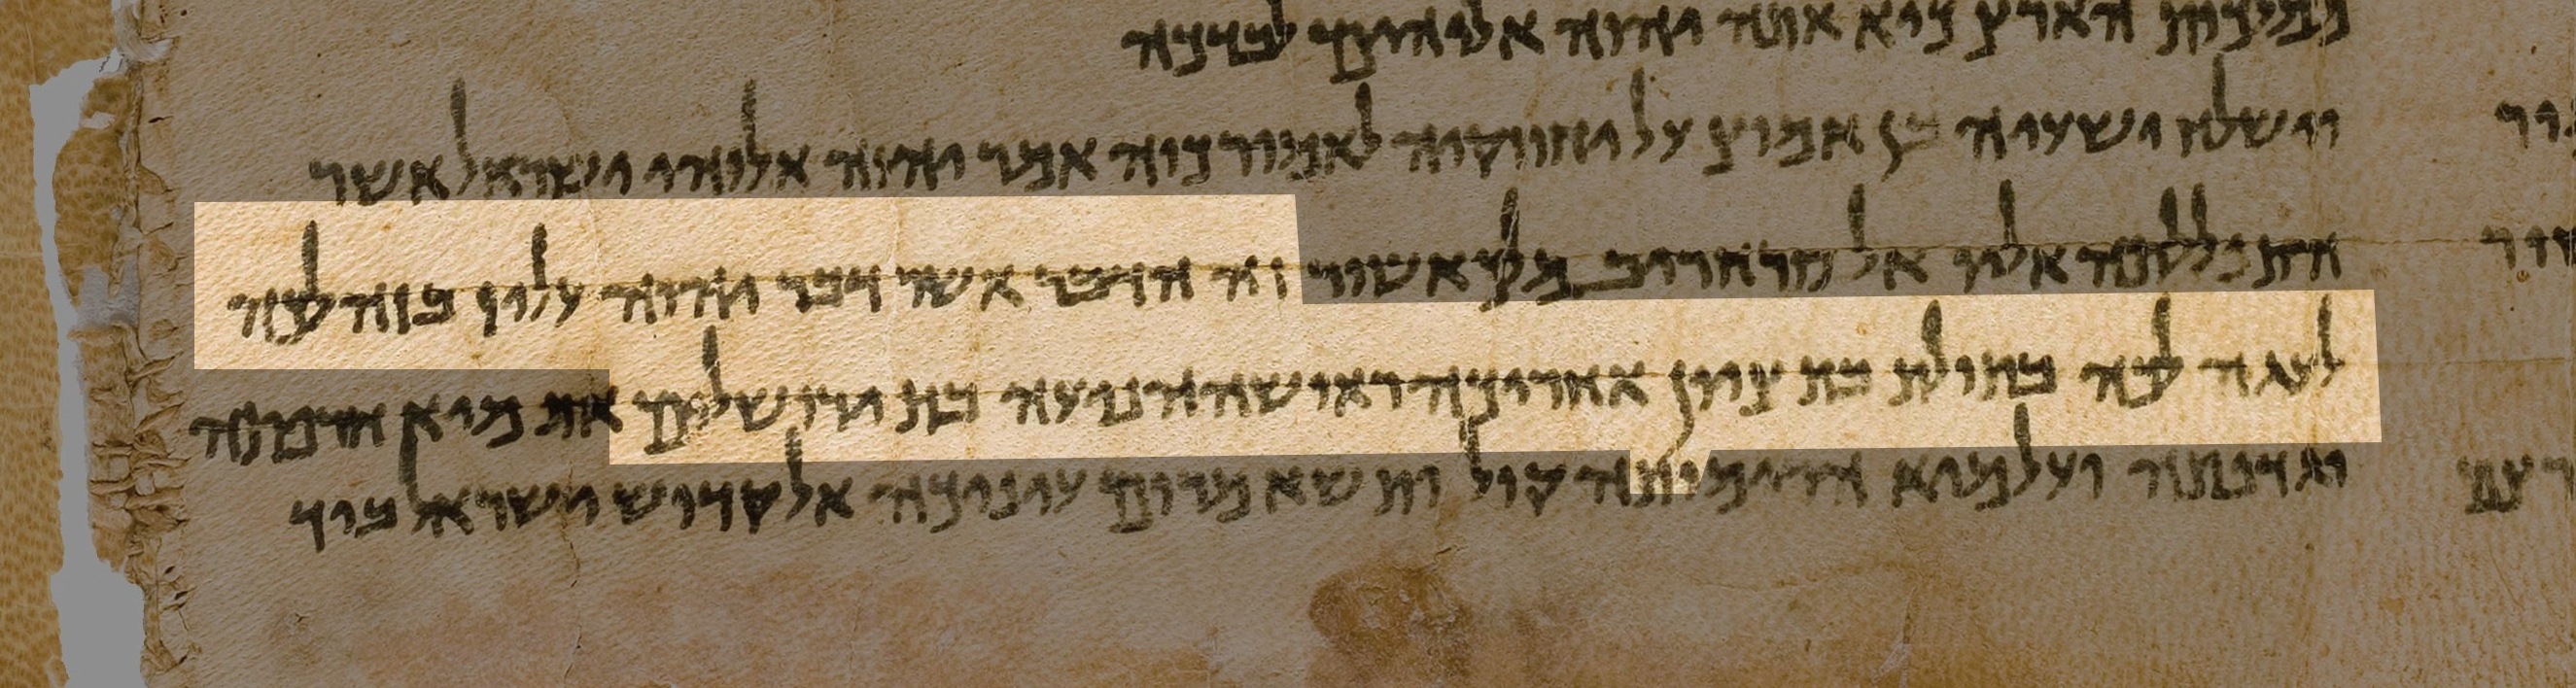 ממלכות הארץ כיא אתה יהוה אלוהים לבדכה
וישלח ישעיה בן אמוץ על יחוזקיה לאמור כוה אמר יהוה אלוהי ישראל אשר
התפללתה אליו אל סרחריב מלך אשור זה הדבר אשר דבר יהוה עליו בזה לכה
לעגה לכה בתולת בת ציון אחריכה ראושה הניעה בת ירושלים את מיא חרפתה
וגדפתה ועל מיא הרימותה קול ותשא מרום עיניכה אל קדוש ישראל ביד